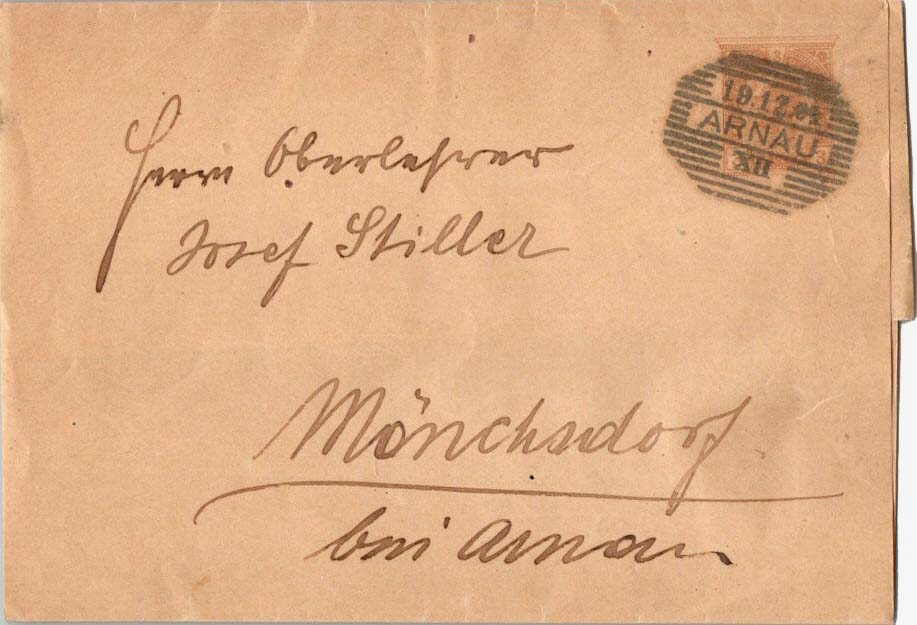 19.12.02
ARNAU
XII
3
Herrn Oberlehrer
Josef Stiller
Mönchsdorf
bei Arnau